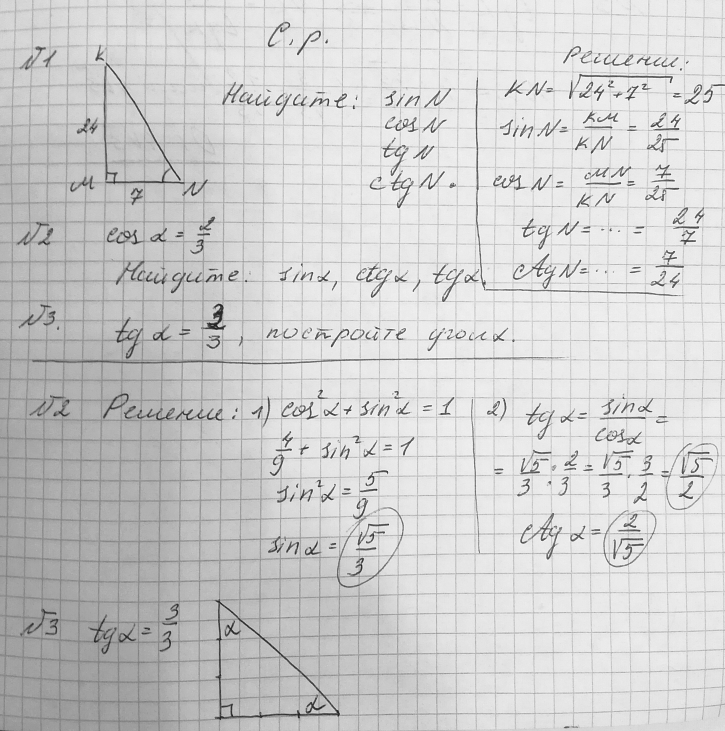 С.р.
√1
K
24
M
7
N
Найдите: sin N
cos N
tg N
ctg N.
Решение:
KN = √24² + 7² = 25
sin N = KM/KN = 24/25
cos N = MN/KN = 7/25
tg N = ... = 24/7
ctg N = ... = 7/24
√2 cos α = 2/3
Найдите: sin α, ctg α, tg α.
√3. tg α = 3/3, постройте угол α.
√2 Решение: 1) cos²α + sin²α = 1
4/9 + sin²α = 1
sin²α = 5/9
sin α = √5/3
2) tg α = sin α/cos α =
= √5/3 : 2/3 = √5/3 · 3/2 = √5/2
ctg α = 2/√5
√3 tg α = 3/3
α
α